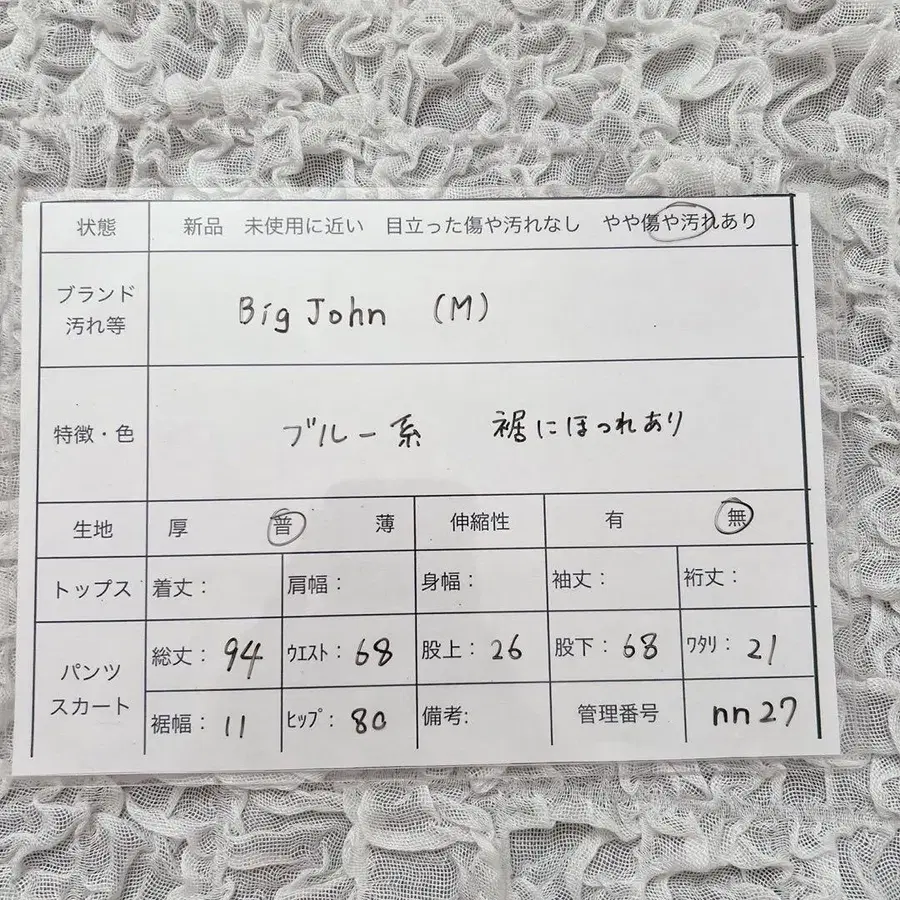 状態 新品 未使用に近い 目立った傷や汚れなし やや傷や汚れあり
ブランド
汚れ等
Big John (M)
特徴・色 ブルー系 裾にほつれあり
生地 厚 普 薄 伸縮性 有 無
トップス 着丈: 肩幅: 身幅: 袖丈: 裄丈:
パンツ
スカート
総丈: 94 ウエスト: 68 股上: 26 股下: 68 ワタリ: 21
裾幅: 11 ヒップ: 80 備考: 管理番号 nn27